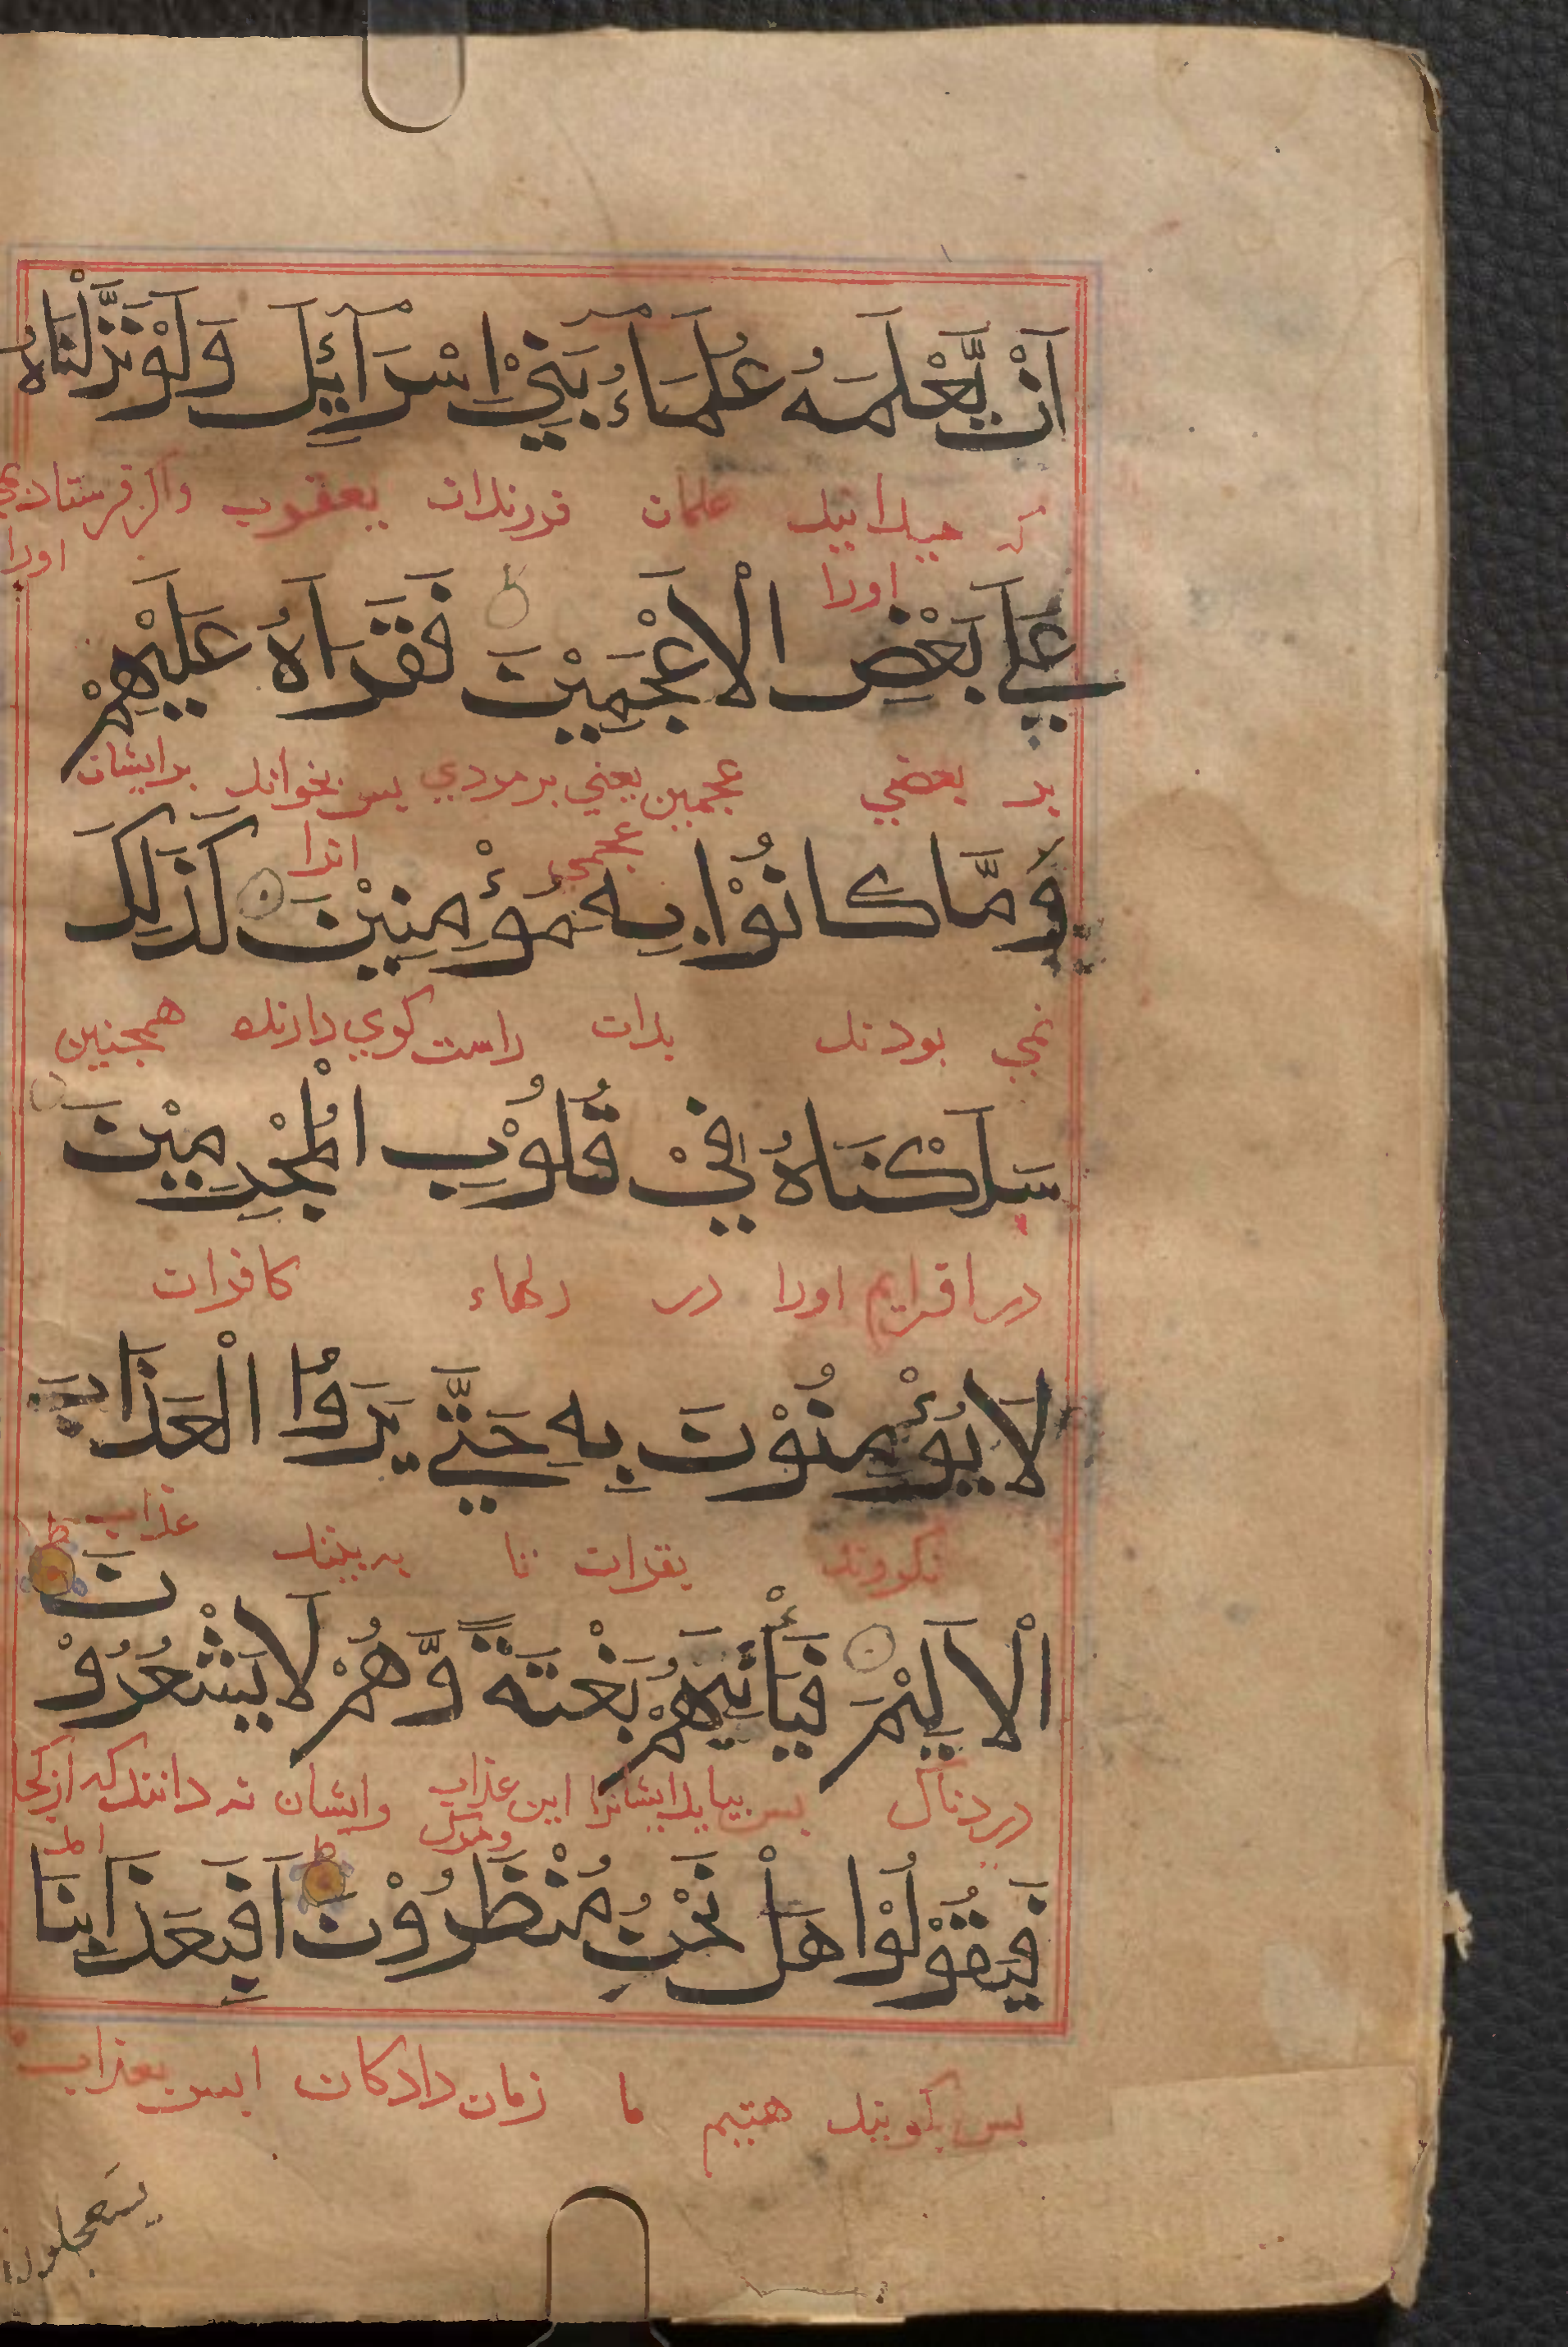 اَنْ يَّعْلَمَهُ عُلَمَاءُ بَنِيْ اِسْرَائِيْلَ وَلَوْ نَزَّلْنَاهُ
كه ميدانيد علمان فرزندان يعقوب واكر فرستادي
اورا اورا
عَلٰي بَعْضِ الْاَعْجَمِيْنَ فَقَرَاَهُ عَلَيْهِمْ
بر بعضي عجمين يعني بر مردي بس بخواند برايشان
عجمي انرا
مَّا كَانُوْا بِهِ مُؤْمِنِيْنَ كَذٰلِكَ
نمي بودند بدان راست كوي دارنده همجنين
سَلَكْنَاهُ فِيْ قُلُوْبِ الْمُجْرِمِيْنَ
در اوريم اورا در دلهاء كافران
لَا يُؤْمِنُوْنَ بِهِ حَتّٰي يَرَوُا الْعَذَابَ
نكروند بقران تا به بينند عذاب
الْاَلِيْمَ فَيَأْتِيَهُمْ بَغْتَةً وَّهُمْ لَا يَشْعُرُوْنَ
دردناك بس بيايد ايشانرا اين عذاب وايشان نه دانند كه از كجا
ومرك امد
فَيَقُوْلُوْا هَلْ نَحْنُ مُنْظَرُوْنَ اَفَبِعَذَابِنَا
بس كويند هستيم ما زمان دادكان ايس بعذاب
يستعجلون